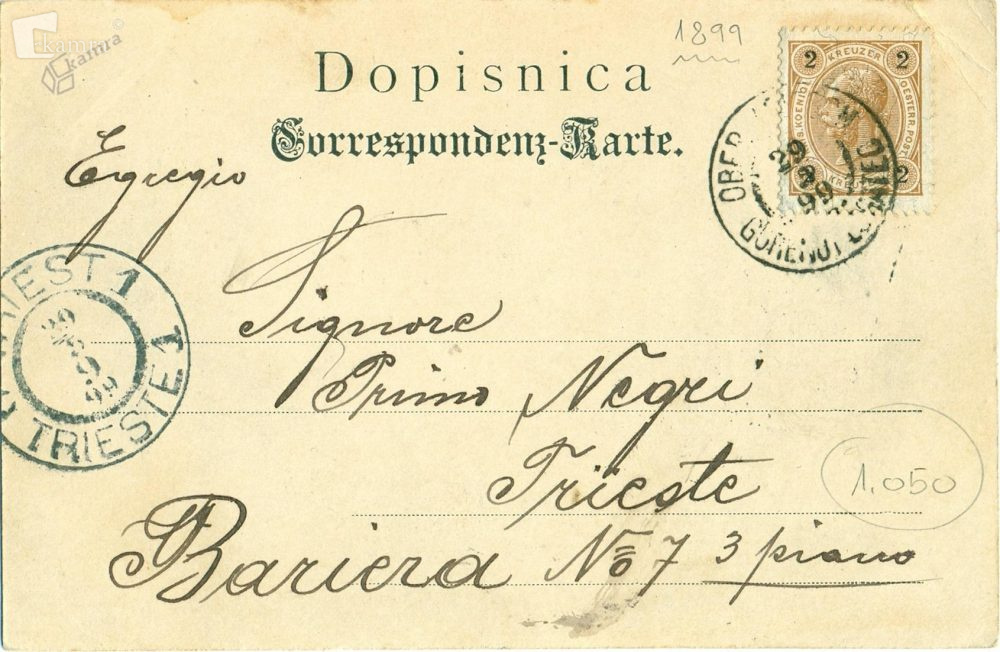 kamra
kamra
1899
Dopisnica
Correspondenz-Karte.
2 KREUZER 2
OESTERR. POST
2
29 8 99
Egregio
Signore
Primo Negri
Trieste
Bariera No 7 3 piano
TRIEST 1
TRIESTE 1
1.050